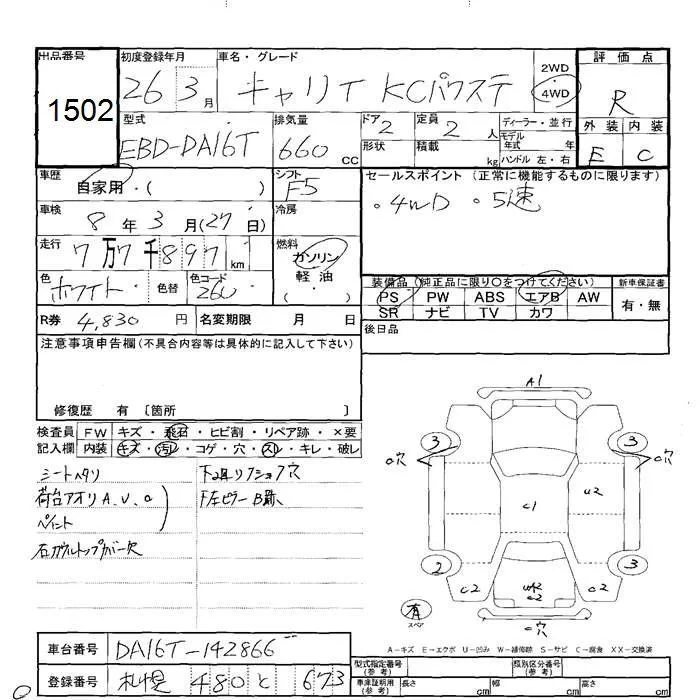 出品番号
1502
初度登録年月
26 3月
車名・グレード
キャリイ KCパワステ
2WD
4WD
評価点
R
外装 内装
E C
型式
EBD-DA16T
排気量
660 CC
ドア 2
定員 2 人
形状
積載 kg
ディーラー・並行
モデル年式 年
ハンドル 左・右
車歴
自家用・( )
シフト
F5
セールスポイント (正常に機能するものに限ります)
・4WD ・5速
車検
8年 3月 (27日)
冷房
走行
7万7千897 km
燃料
ガソリン
軽油
( ・ )
色
ホワイト
色替
色コード
26U
装備品 (純正品に限り○をつけてください)
新車保証書
PS PW ABS エアB AW
SR ナビ TV カワ
有・無
R券 4,830 円
名変期限 月 日
後日品
注意事項申告欄(不具合内容等は具体的に記入して下さい)
修復歴 有 〔箇所 〕
検査員記入欄
FW キズ・飛石・ヒビ割・リペア跡・×要
内装 キズ・汚レ・コゲ・穴・スレ・キレ・破レ
シートヘタリ
荷台アオリ A、U、C
ペイント
下廻リ
穴
F左ピラー
A1
3
3
穴
穴
C1
U2
2
3
C2
W2
C2
C2
穴
有
スペア
A-キズ E-エクボ U-凹み W-補修跡 S-サビ C-腐食 XX-交換済
車台番号
DA16T-142866
登録番号
札幌 480 と 673
型式指定番号(参考)
類別区分番号(参考)
車庫証明用(参考)
長さ cm
幅 cm
高さ cm